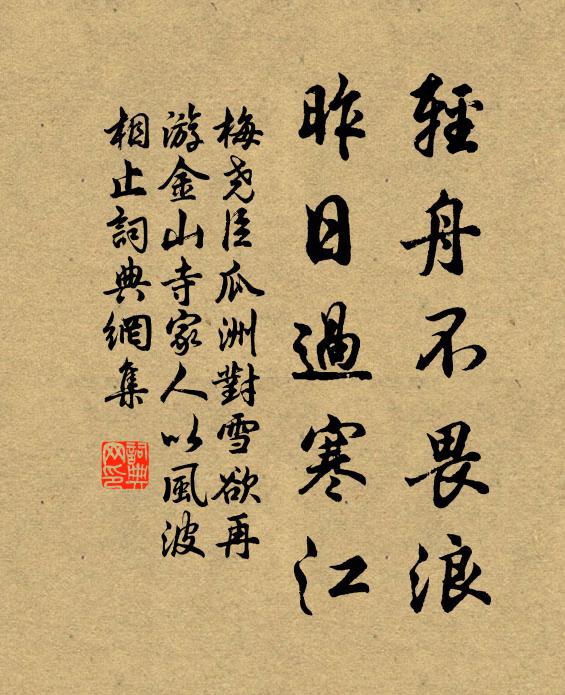 輕舟不畏浪
昨日過寒江
梅堯臣瓜洲對雪欲再
游金山寺家人以風波
相止詞典網集
詞典
网印